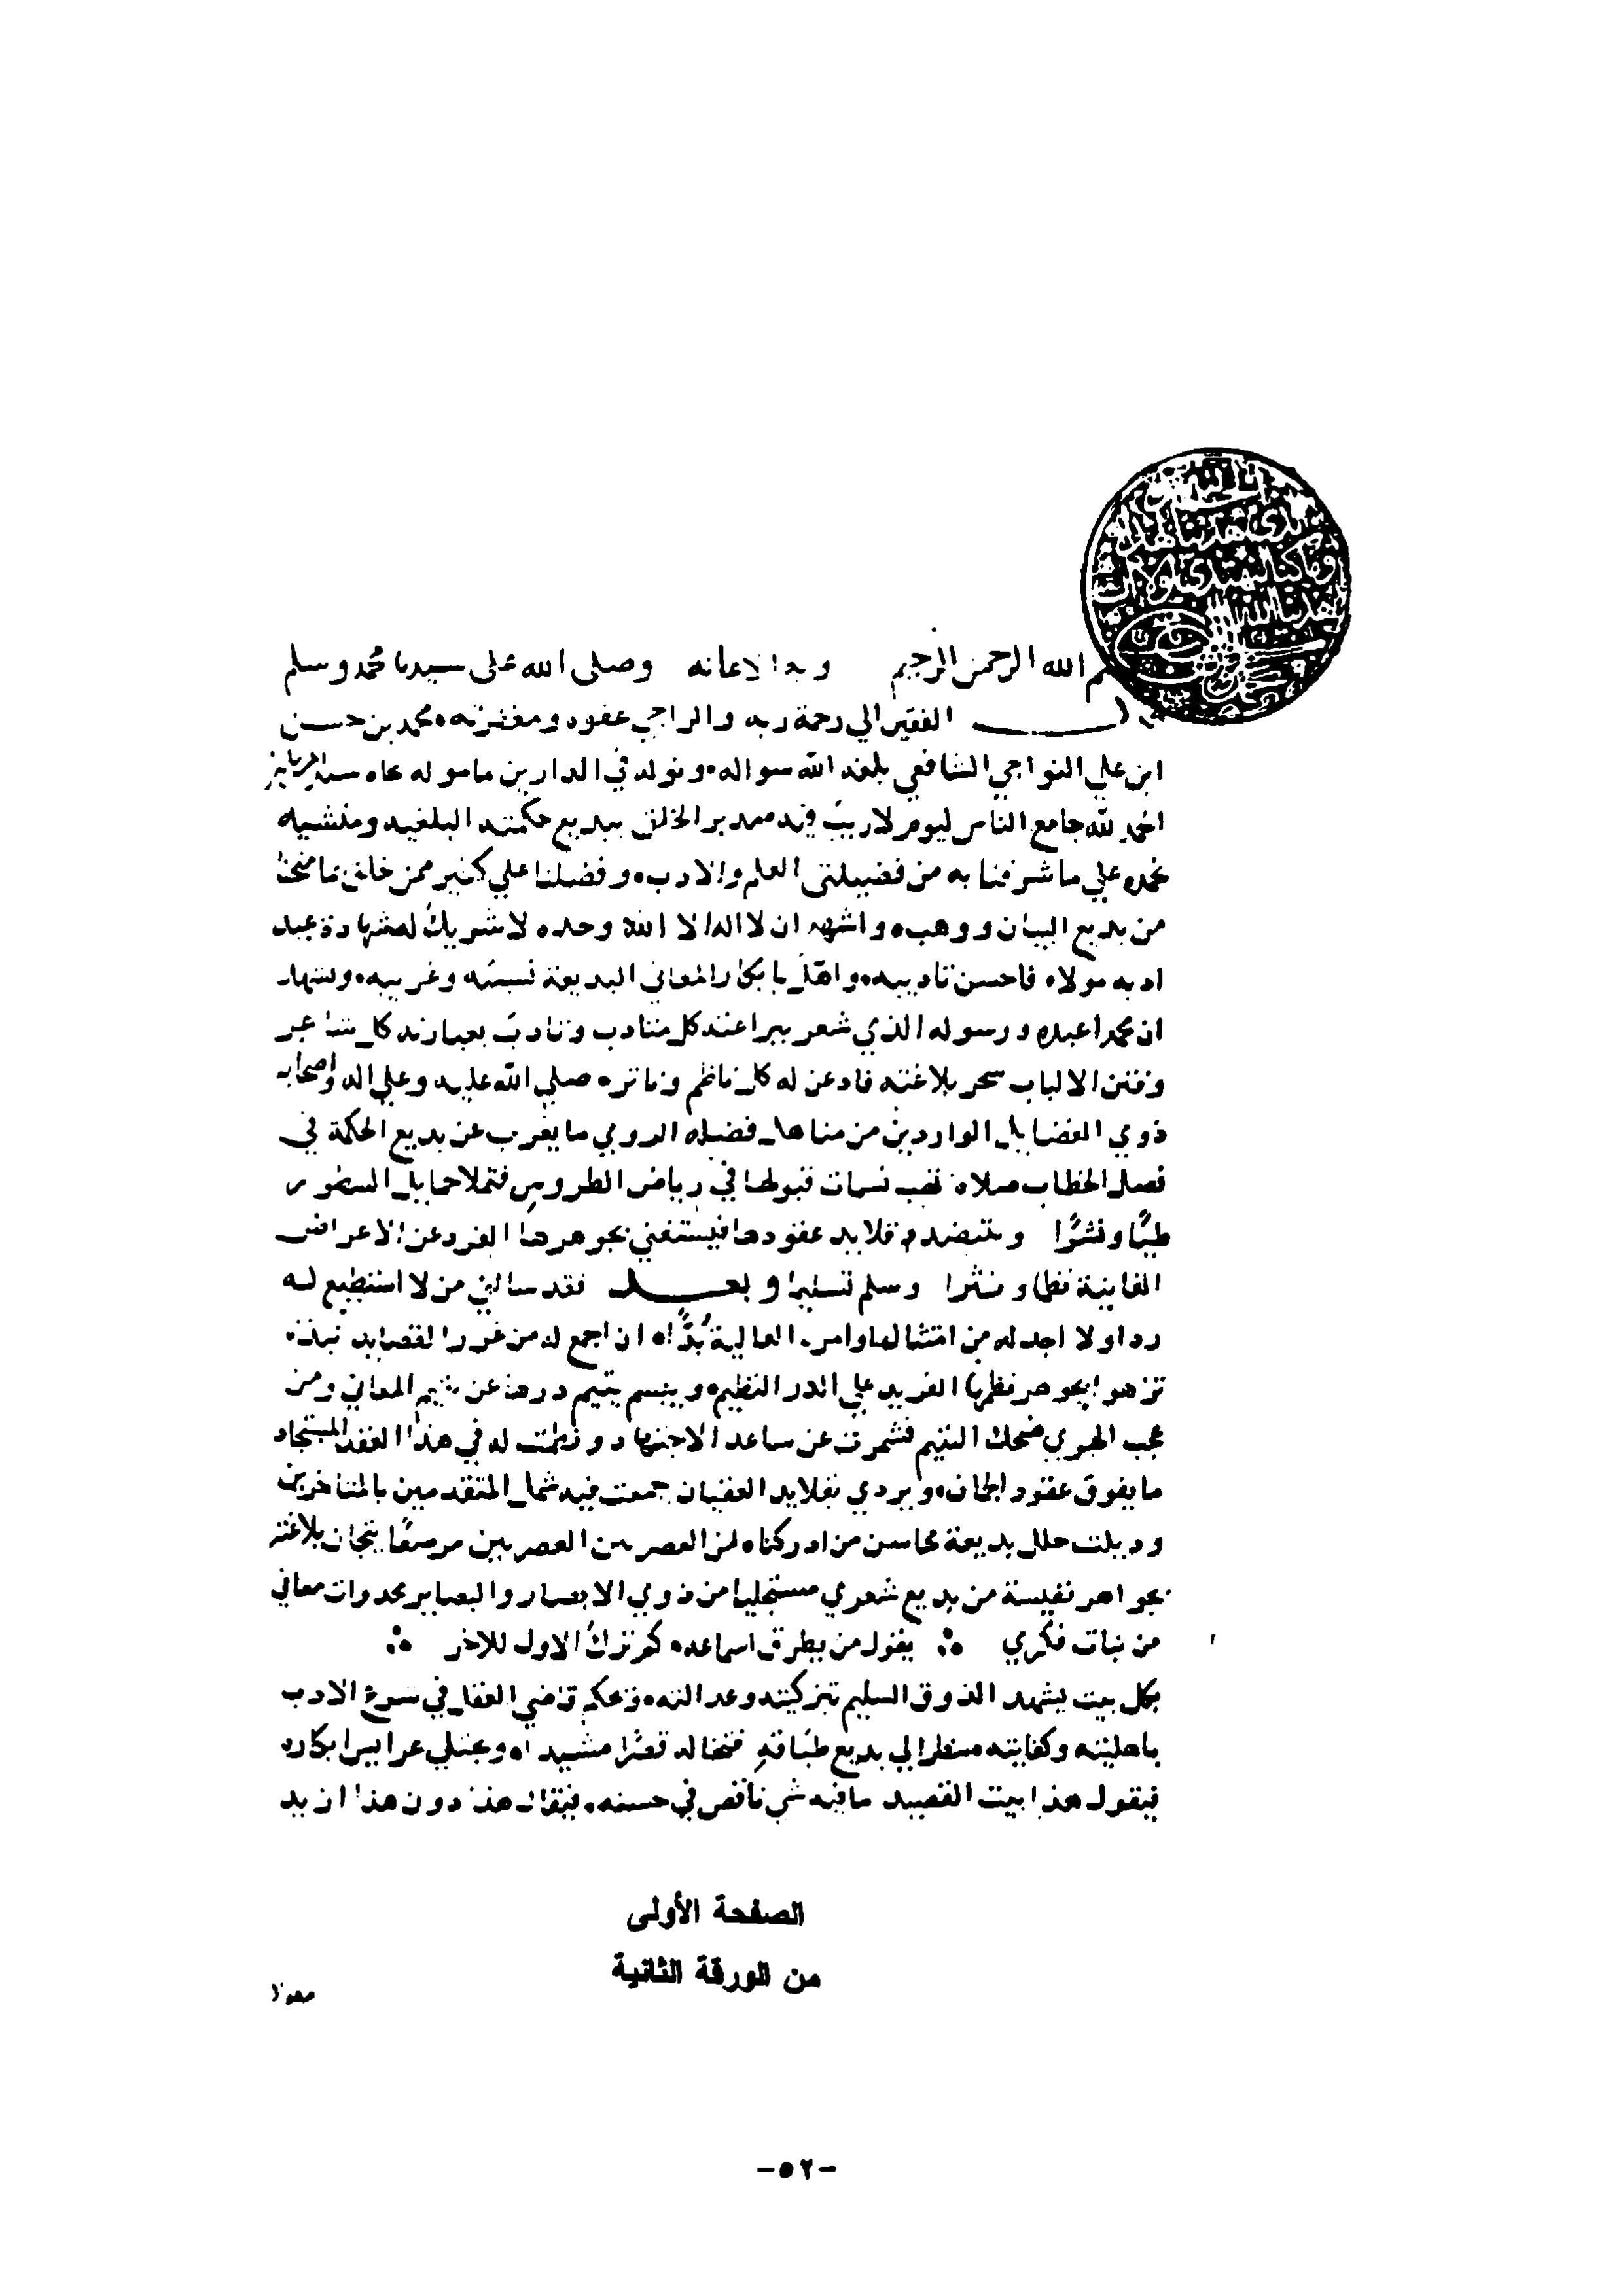 الحمد لله الذي هدانا لهذا
وما كنا لنهتدي لولا ان
هدانا الله
م الله الرحمن الرحيم وبه الاعانه وصلى الله على سيدنا محمد وسلم
الفقير الي رحمة ربه والراجي عفوه ومغفرته محمد بن حسن
ابن علي النواجي الشافعي بلغه الله سواله ونوله في الدارين ماموله
الحمد لله جامع الناس ليوم لا ريب فيه مدبر الخلق ببديع حكمته البليغه ومنشيه
نحمده علي ما شرفنا به من فضيلتي العلم والادب وفضلنا علي كثير ممن خلق بما منحنا
من بديع البيان ووهب واشهد ان لا اله الا الله وحده لا شريك له شهادة عبد
ادبه مولاه فاحسن تاديبه واهل بابكار المعاني البديعة نسيبه وغريبه ونشهد
ان محمدا عبده ورسوله الذي شعر ببراعته كل متادب وتادب بعبارته كل شاعر
وفتن الالباب سحر بلاغته فاذعن له كل ناظم وناثر صلي الله عليه وعلي اله واصحابه
ذوي الفضايل الواردين من مناهل فضله الروي ما يغرب عن بديع الحكمة في
فصل الخطاب صلاة تهب نسمات قبولها في رياض الطروس فتملا خمايل السطور
طيا ونشرا وتتنضد قلايد عقودها فيستغني بجوهرها الفرد عن الاعراض
الفانية نظما ونثرا وسلم تسليما وبعد فقد سالني من لا استطيع له
ردا ولا اجد له من امتثالها وامره العالية بدا ان اجمع له من غرر القصايد نبذة
تزهو بجوهر نظمها الفريد علي الدر النظيم ويبسم يتيم درها عن المعاني ومن
عجب الهوي ضحك اليتيم فشمرت عن ساعد الاجتهاد ونظمت له في هذا العقد المستجاد
ما يفوق عقود الجمان ويزدي بقلايد العقيان جمعت فيه شمل المتقدمين بالمتاخرين
وذيلت حلل بديعة محاسن من ادركناه من العصريين مرصعا تيجان بلاغته
بجواهر نفيسة من بديع شعري مستجليا من ذوي الابصار والبصاير مخدرات معاني
من بنات فكري يقول من يطرق اسماعه كم ترك الاول للاخر
بكل بيت يشهد الذوق السليم بتزكيته وعدالته وحكم قاضي العقل في شرع الادب
باهليته وكفايته منظرا لي بديع طباقه فتخاله قصرا مشيدا وتجتلي عرايس ابكاره
فيقول هذا بيت القصيد ما فيه شي ناقص في حسنه فيقال هذا دون هذا ان يد
الصفحة الأولى
من الورقة الثانية
-٥٢-